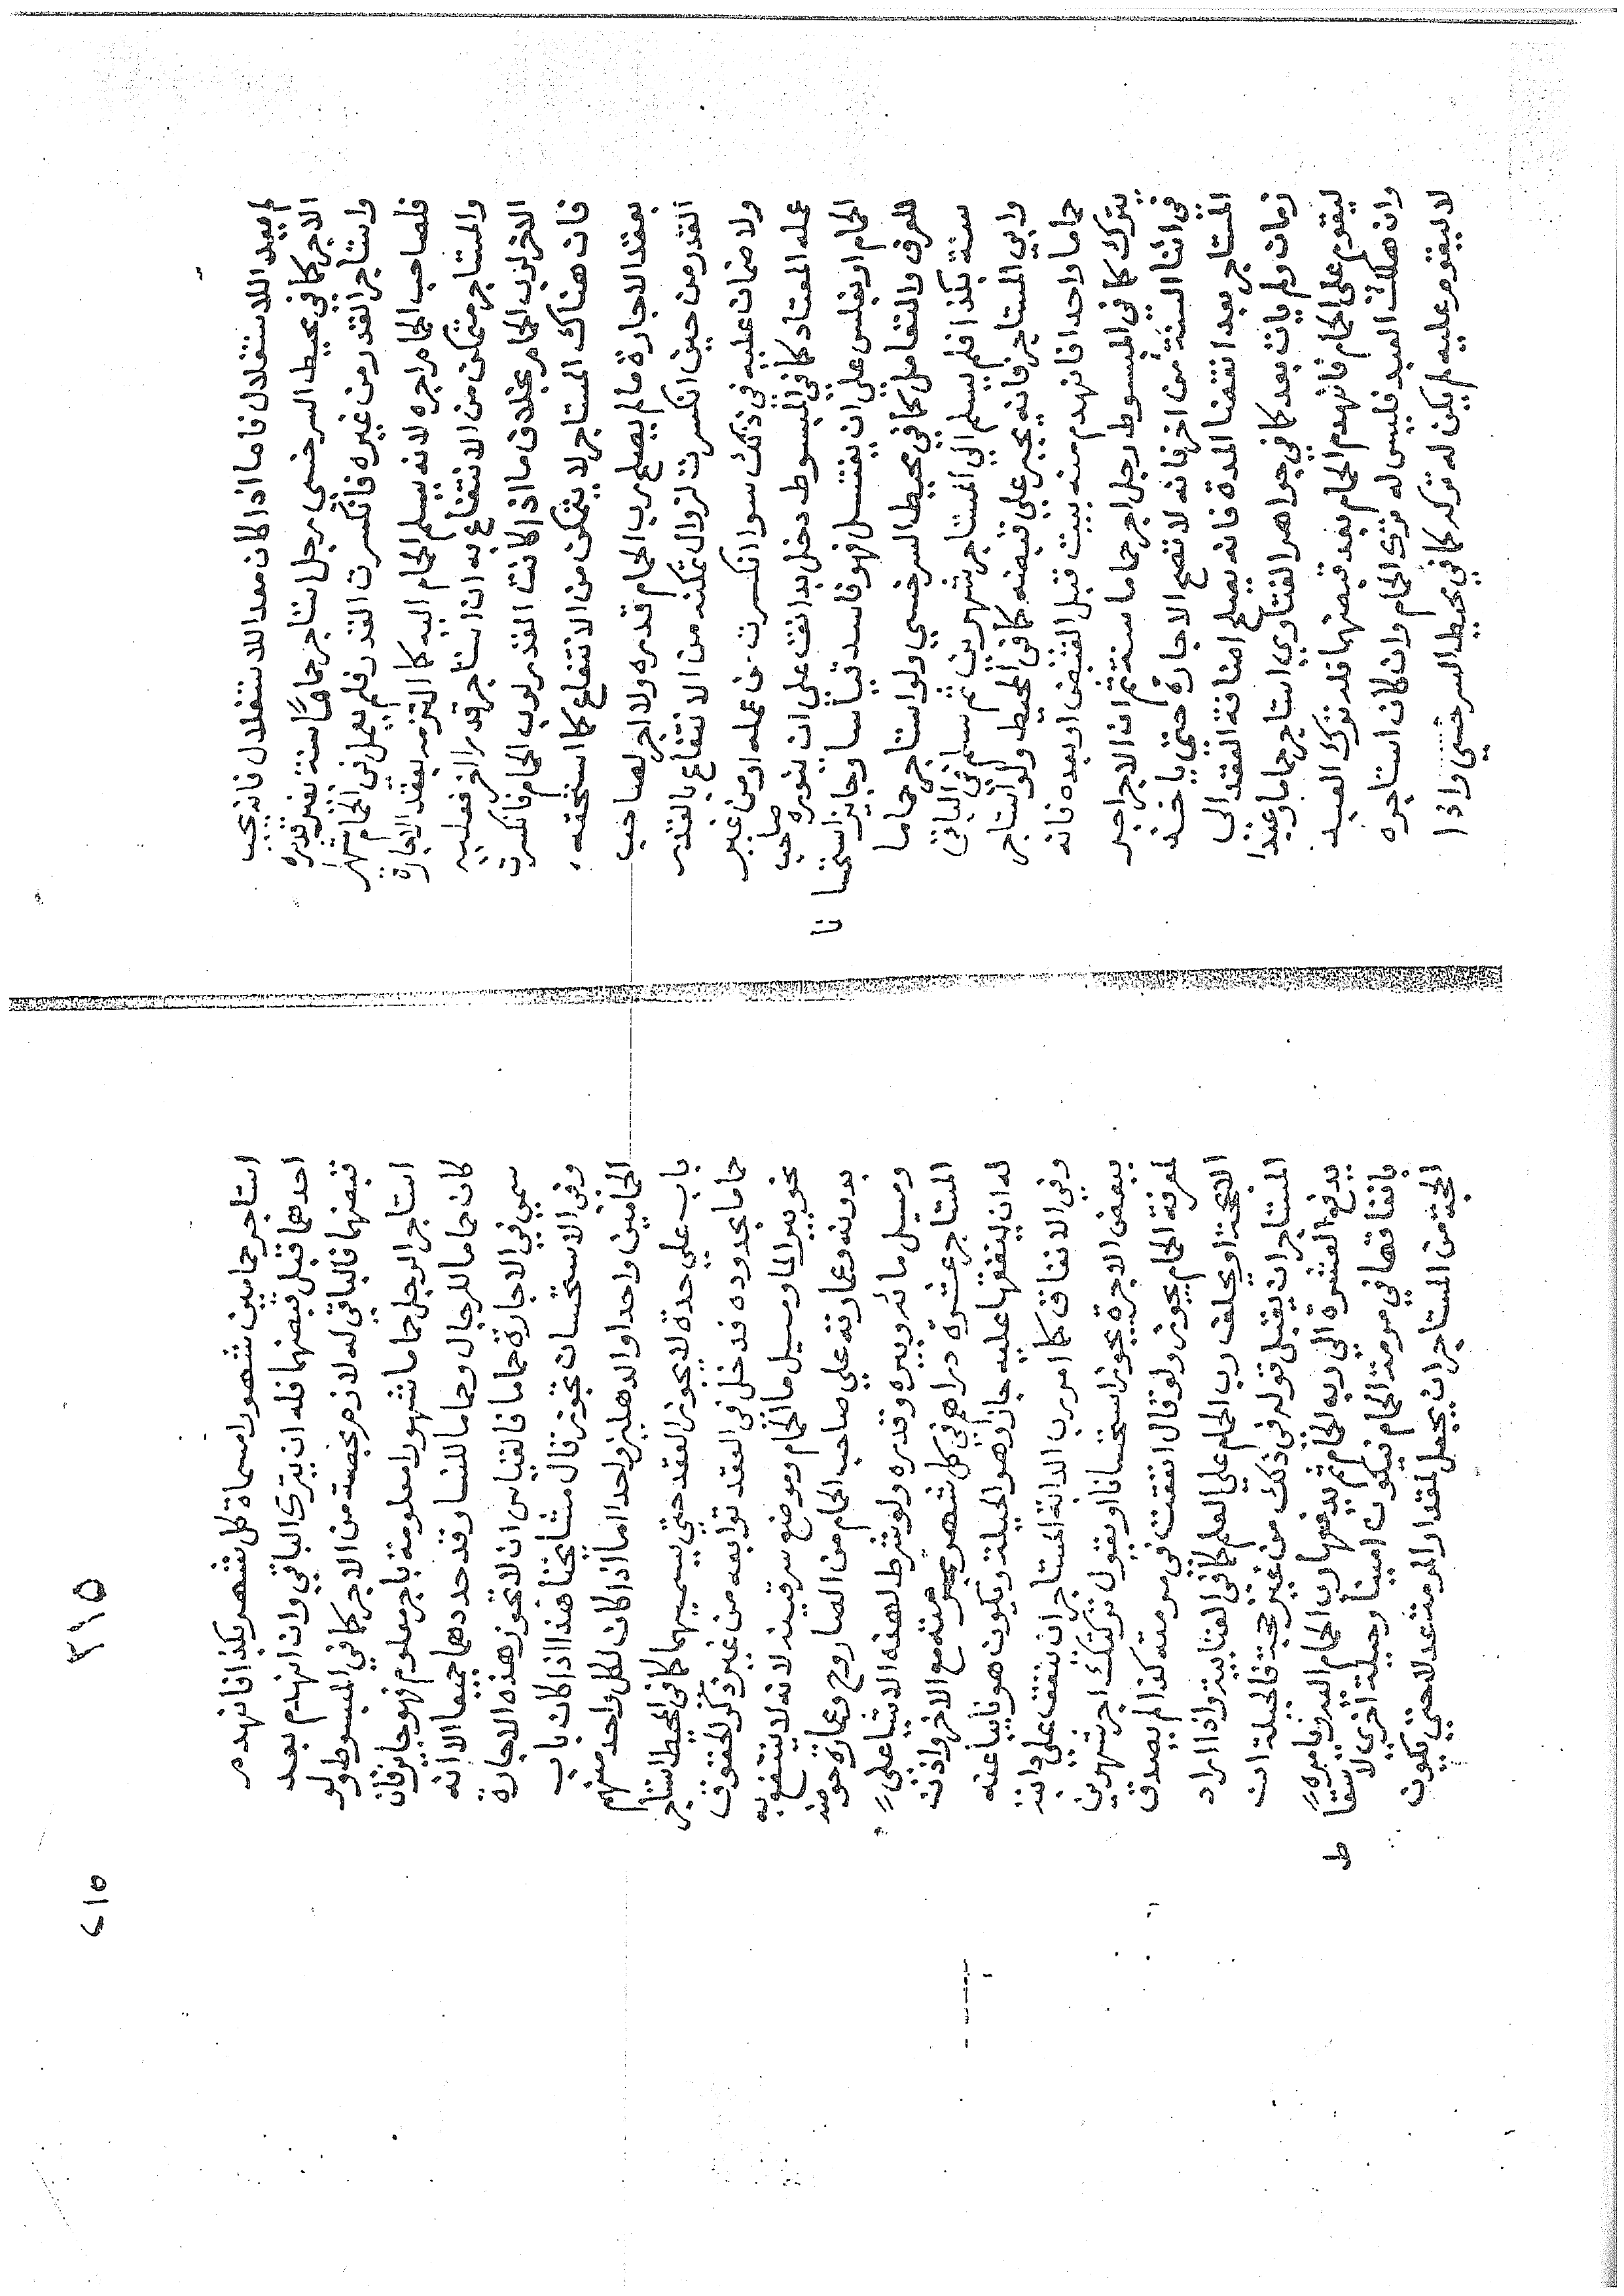 لم يعد للاستغلال فاما اذا كان معدا للاستغلال فانه يجب
الاجر كما في محيط السرخسي رجل استاجر حماما سنة بغير قدره
واستاجر القدر من غيره فانكسرت القدر فلم يعمل في الحمام شهرا
فلصاحب الحمام اجره لانه يسلم الحمام اليه كما التزمه بعقد الاجارة
والمستاجر متمكن من الانتفاع به ان استاجر قدرا اخر فعليه
الاجر لرب الحمام بخلاف ما اذا كانت القدر لرب الحمام فانكسرت
فان هناك المستاجر لا يتمكن من الانتفاع كما استحقه
بعقد الاجارة ما لم يصلح رب الحمام قدره ولا اجر لصاحب
القدر من حين انكسرت لزوال تمكنه من الانتفاع بالقدر
ولا ضمان عليه في ذلك سوا انكسرت من عمله او من غير
عمله المعتاد كما في المبسوط دخل بدانق على ان ينوره صاحب
الحمام او يجلس على ان يغتسل فهو فاسد قياسا وجايز استحسانا
للعرف والتعامل كما في محيط السرخسي ولو استاجر حماما
سنة بكذا فلم يسلم الي المستاجر شهرين ثم سلم في الباقي
وابي المستاجر فانه يجبر علي قبضه كما في المحيط ولو استاجر
حماما واحدا فانهدم منه بيت قبل القبض او بعده فانه
يترك كما في المبسوط رجل اجر حماما سنة ثم ان الاجر اجر
في اثنا السنة من اخر فانه لا تصح الاجارة حتى ياخذ
المستاجر بعد انقضا المدة فانه يصلح اضافة العقد الى
زمان ولم يات بعد كما في جواهر الفتاوي استاجر حماما وعبدا
ليقوم على الحمام فانهدم الحمام بعد قبضهما فله ترك العبد
وان هلك العبد فليس له ترك الحمام وان كان استاجره
لا ليقوم عليه لم يكن له تركه كما في محيط السرخسي واذا
٢١٥
٢١٥
استاجر حمامين شهورا مسماة كل شهر بكذا فانهدم
احدهما قبل قبضهما فله ان يترك الباقي وان انهدم بعد
قبضهما فالباقي له لازم بحصته من الاجر كما في المبسوط ولو
استاجر الرجل حماما شهورا معلومة باجر معلوم فهو جايز فان
كان حماما للرجال وحماما للنسا وقد حددهما جميعا الا انه
سمي في الاجارة حماما فالقياس ان لا تجوز هذه الاجارة
وفي الاستحسان تجوز قال مشايخنا هذا اذا كان باب
الحمامين واحدا والدهليز واحدا اما اذا كان لكل واحد منهم
باب علي حدة لا يجوز العقد حتي يسميهما كما في المحيط استاجر
حماما بحدوده فدخل في العقد توابعه من غير ذكر الحقوق
نحو بير الما ومسيل ما الحمام وموضع سرقينه لانه لا ينتفع به
بدونه وعمارته علي صاحب الحمام من الصاروج وعمارة حوضه
ومسيل مائه وبيره وقدره ولو شرط لهذه الاشيا على
المستاجر عشرة دراهم في كل شهر لمرمته مع الاجر واذن
له ان ينفقها عليه جاز وهو الحيلة ويكون هو نايبا عنه
وفي الانفاق كما امر رب الدابة المستاجر ان ينفق علي دابته
ببعض الاجرة يجوز استحسانا او يقول تركتك اجر شهرين
لمرمة الحمام يجوز ولو قال انفقت في مرمته كذا لم يصدق
الا بحجة او يحلف رب الحمام علي العلم كما في الغياثية واذا اراد
المستاجر ان يقبل قوله في ذلك من غير حجة فالحيلة ان
يدفع العشرة الي رب الحمام ثم يدفعها رب الحمام اليه ويامره
بانفاقها في مرمة الحمام فيكون امينا وحيلة اخري لاسقاط
الحجة من المستاجر ان يجعل لمقدار المرمة عدلا حتي يكون